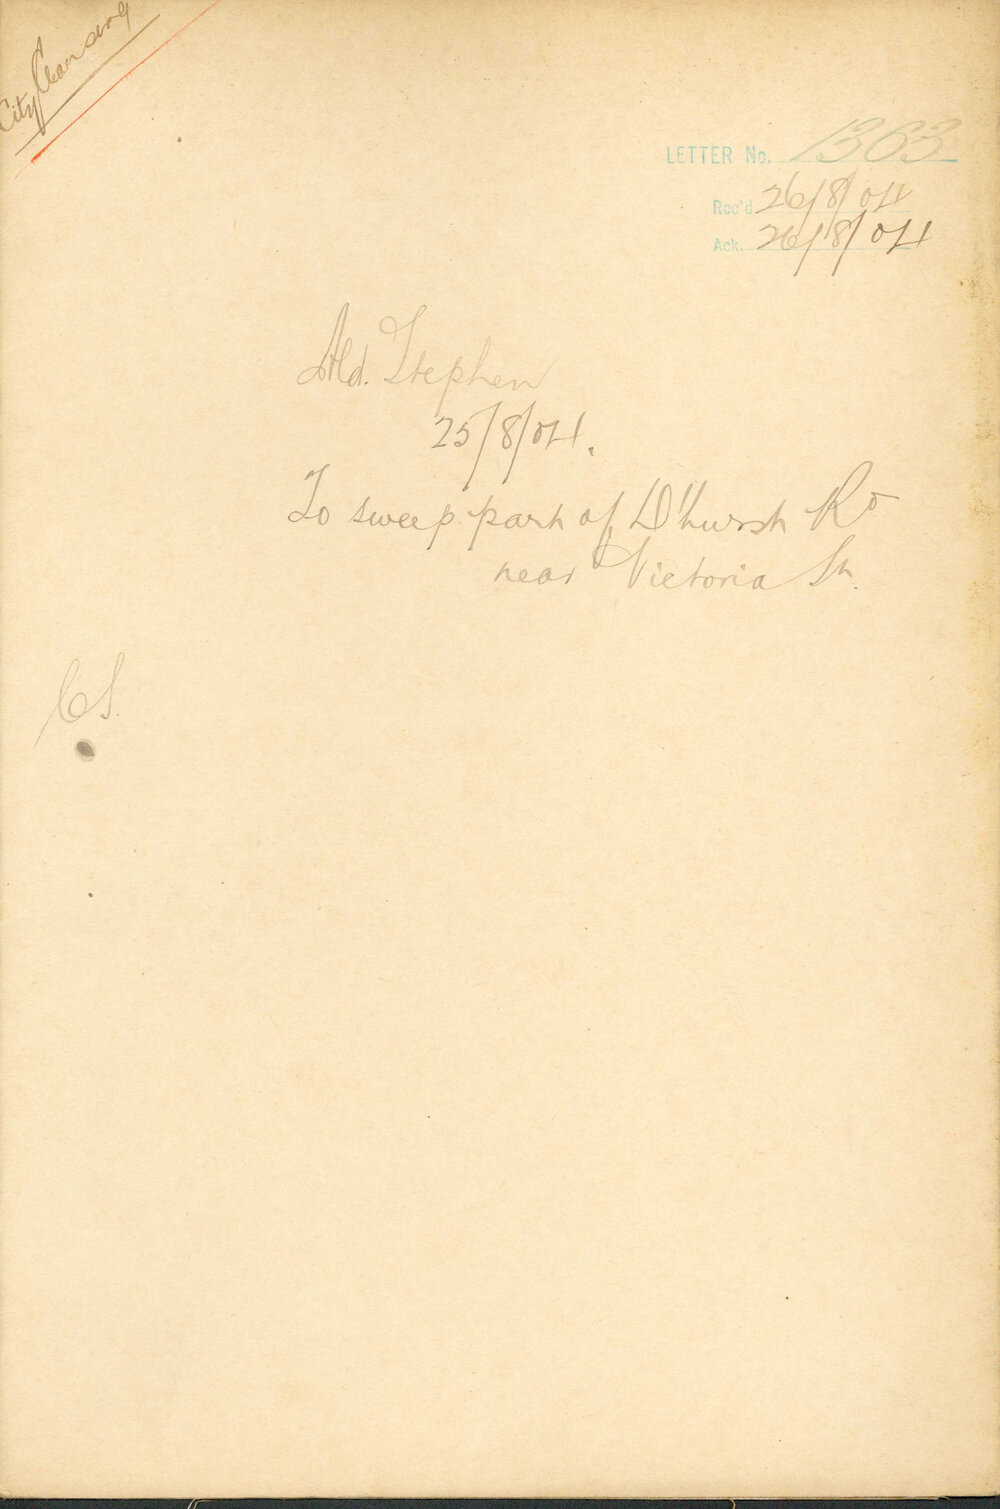 City Cleansing
LETTER No. 1363
Rec'd 26/8/04
Ack. 26/8/04
Ald. Stephen
25/8/04.
To sweep part of D'hurst Rd
near Victoria St.
CS.